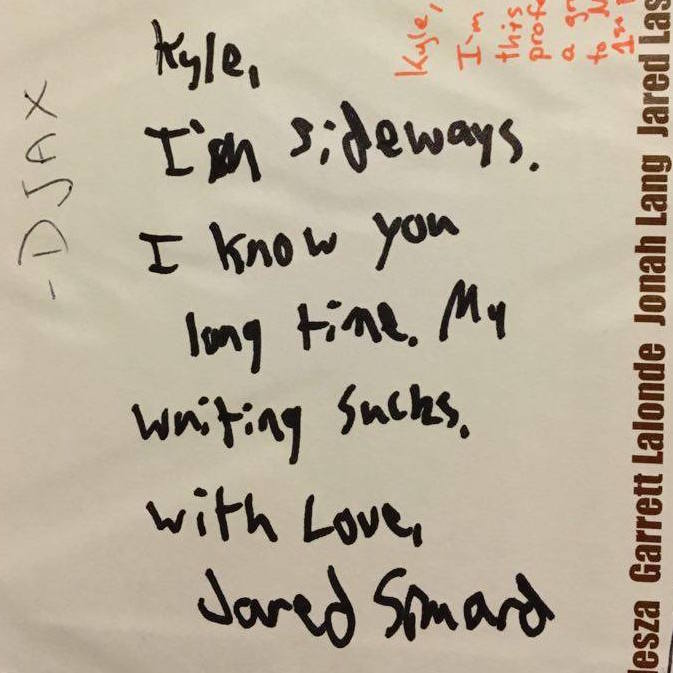 Kyle,
I'm sideways.
I know you
long time. My
writing sucks.
with Love,
Jared Simard
-DJAX
Kyle,
I'm
this
a
to
1st
Garrett Lalonde Jonah Lang Jared